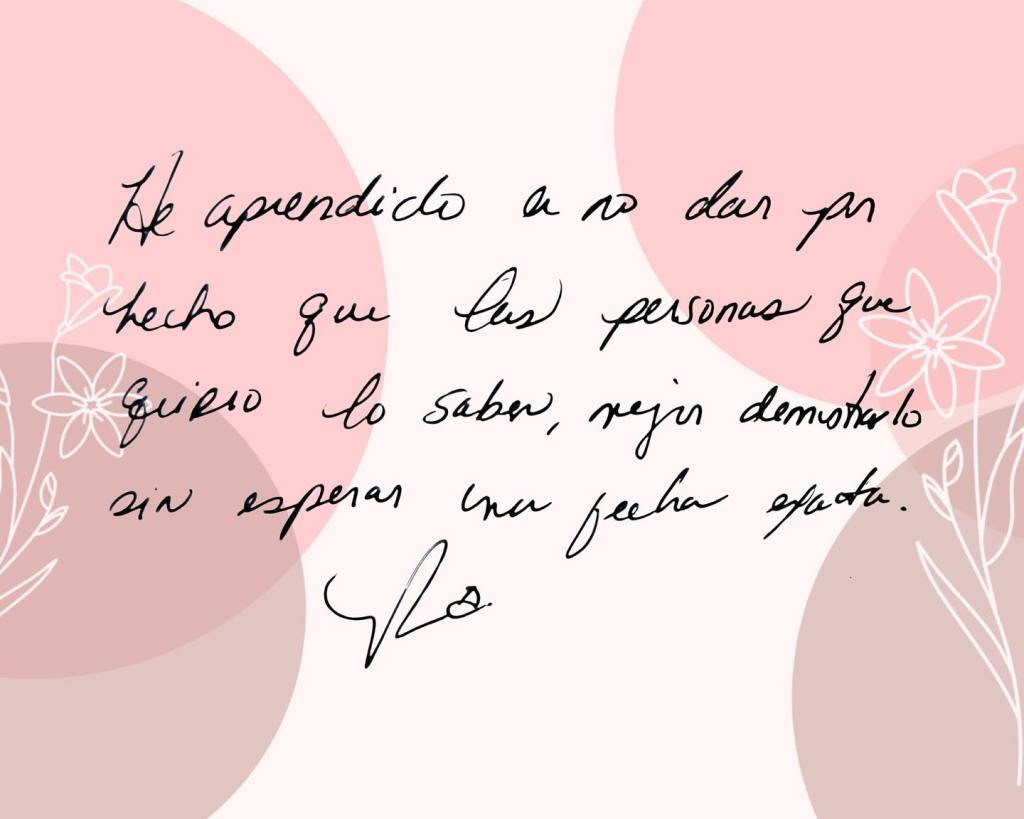 He aprendido a no dar por
hecho que las personas que
quiero lo saben, mejor demostrarlo
sin esperar una fecha exacta.